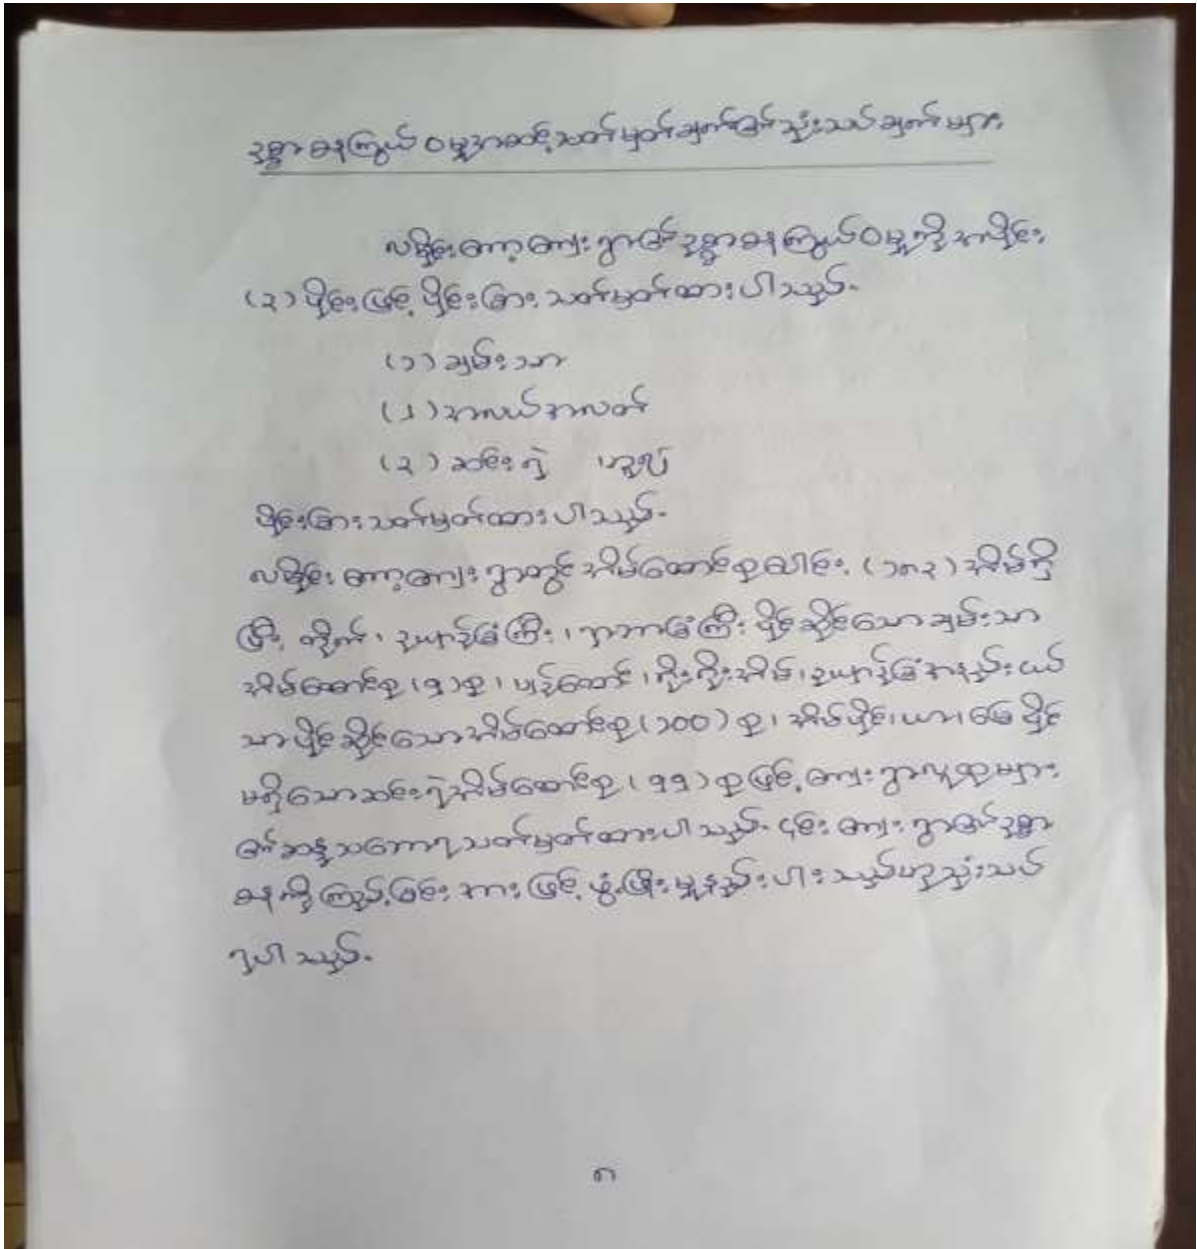 ဥစ္စာဓနကြွယ်ဝမှုအဆင့်သတ်မှတ်ချက်၏သုံးသပ်ချက်များ
လမိုင်းကော့ကျေးရွာ၏ဥစ္စာဓနကြွယ်ဝမှုကိုအပိုင်း
(၃)ပိုင်းဖြင့်ပိုင်းခြားသတ်မှတ်ထားပါသည်။
(၁)ချမ်းသာ
(၂)အလယ်အလတ်
(၃)ဆင်းရဲ ဟူ၍
ပိုင်းခြားသတ်မှတ်ထားပါသည်။
လမိုင်းကော့ကျေးရွာတွင်အိမ်ထောင်စုပေါင်း (၁၈၃)အိမ်ရှိ
ပြီး တိုက်၊ ဥယျာဉ်ခြံကြီး၊ ရာဘာခြံကြီးပိုင်ဆိုင်သောချမ်းသာ
အိမ်ထောင်စု(၅)စု၊ ပျဉ်ထောင်၊ရိုးရိုးအိမ်၊ဥယျာဉ်ခြံအနည်းငယ်
သာပိုင်ဆိုင်သောအိမ်ထောင်စု(၁၀၀)စု၊ အိမ်ပိုင်၊ယာ၊မြေပိုင်
မရှိသောဆင်းရဲအိမ်ထောင်စု(၅၅)စုဖြင့်ကျေးရွာလူထုများ
၏ဆန္ဒသဘောရသတ်မှတ်ထားပါသည်။ ၎င်းကျေးရွာ၏ဥစ္စာ
ဓနကိုကြည့်ခြင်းအားဖြင့်ဖွံ့ဖြိုးမှုနည်းပါးသည်ဟုသုံးသပ်
ရပါသည်။
၈